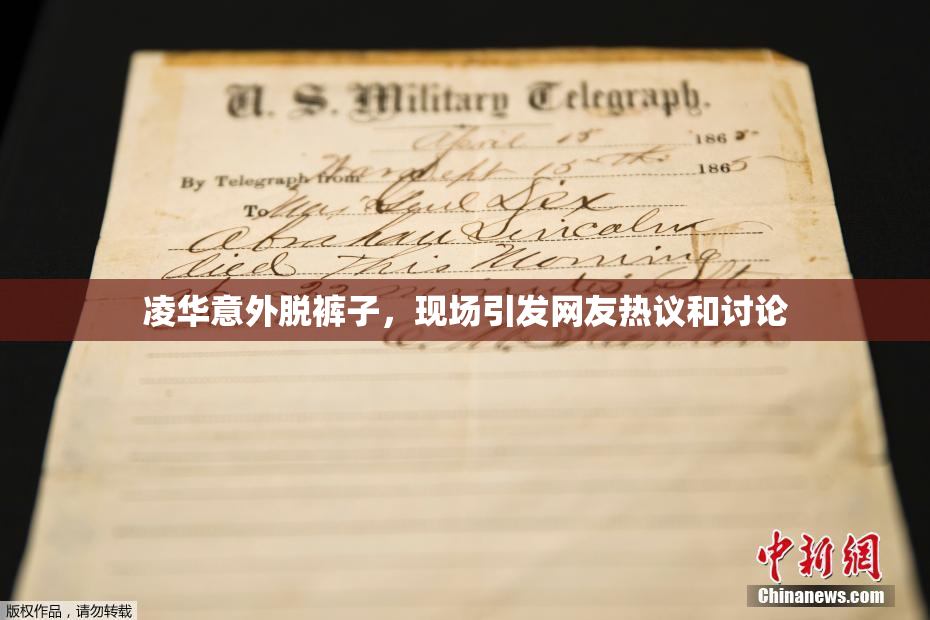 U. S. Military Telegraph.
April 15 1865
By Telegraph from War Dept 15th 1865
To Maj Genl Dix
Abraham Lincoln
died This Morning
at 22 minutes after
凌华意外脱裤子，现场引发网友热议和讨论
E. M. Stanton
中新网
Chinanews.com
版权作品，请勿转载